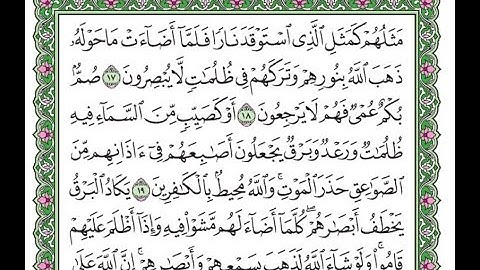 مَثَلُهُمْ كَمَثَلِ ٱلَّذِى ٱسْتَوْقَدَ نَارًا فَلَمَّآ أَضَآءَتْ مَا حَوْلَهُۥ
ذَهَبَ ٱللَّهُ بِنُورِهِمْ وَتَرَكَهُمْ فِى ظُلُمَٰتٍ لَّا يُبْصِرُونَ ١٧ صُمٌّۢ
بُكْمٌ عُمْىٌ فَهُمْ لَا يَرْجِعُونَ ١٨ أَوْ كَصَيِّبٍ مِّنَ ٱلسَّمَآءِ فِيهِ
ظُلُمَٰتٌ وَرَعْدٌ وَبَرْقٌ يَجْعَلُونَ أَصَٰبِعَهُمْ فِىٓ ءَاذَانِهِم مِّنَ
ٱلصَّوَٰعِقِ حَذَرَ ٱلْمَوْتِ ۚ وَٱللَّهُ مُحِيطٌۢ بِٱلْكَٰفِرِينَ ١٩ يَكَادُ ٱلْبَرْقُ
يَخْطَفُ أَبْصَٰرَهُمْ ۖ كُلَّمَآ أَضَآءَ لَهُم مَّشَوْا۟ فِيهِ وَإِذَآ أَظْلَمَ عَلَيْهِمْ
قَامُوا۟ ۚ وَلَوْ شَآءَ ٱللَّهُ لَذَهَبَ بِسَمْعِهِمْ وَأَبْصَٰرِهِمْ ۚ إِنَّ ٱللَّهَ عَلَىٰ